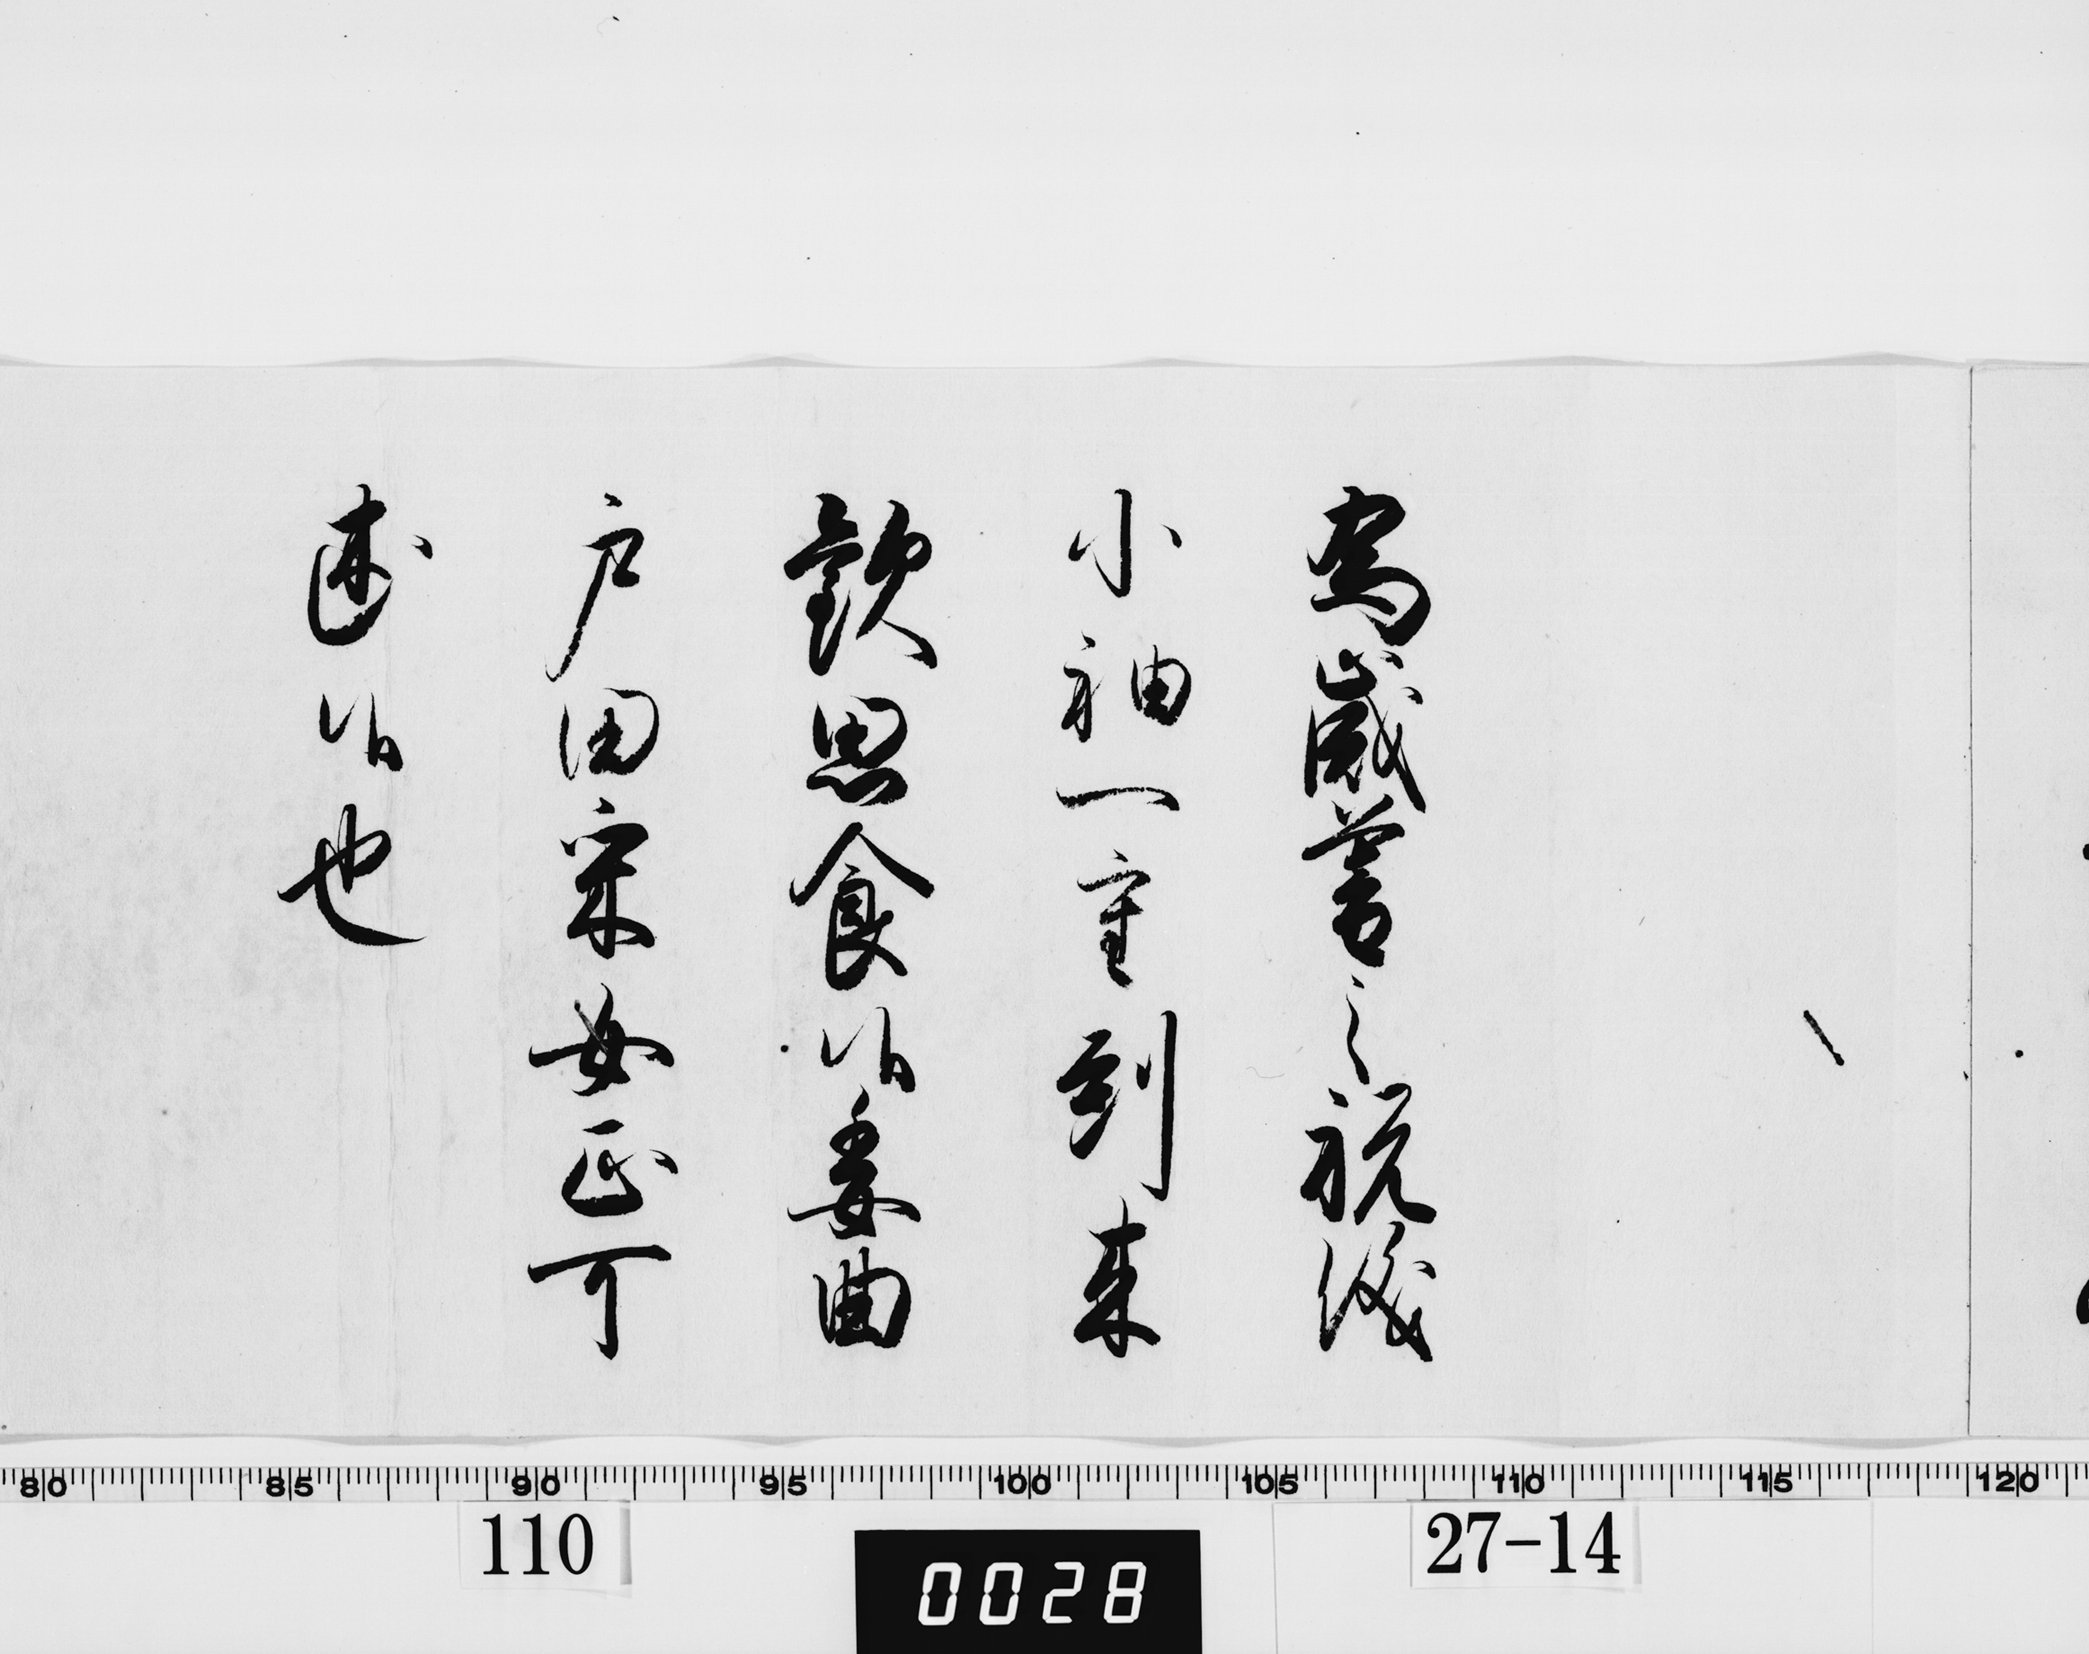 為歳暮之祝儀
小袖一重到来
歓思食候委曲
戸田采女正可
述候也
80 85 90 95 100 105 110 115 120
110
0028
27-14